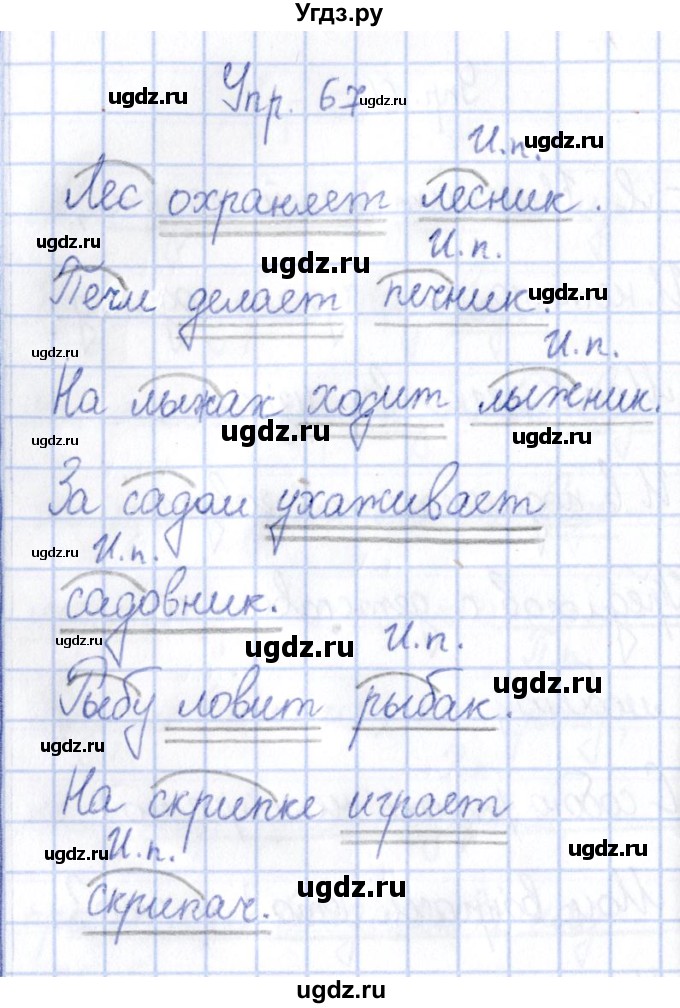 Угдз.ру
ugdz.ru Упр. 67 ugdz.ru
И.п. ugdz.ru
Лес охраняет лесник.
ugdz.ru ugdz.ru И.п.
Печи делает печник.
ugdz.ru ugdz.ru И.п.
На лыжах ходит лыжник.
ugdz.ru ugdz.ru ugdz.ru
За садом ухаживает
ugdz.ru И.п.
садовник.
ugdz.ru ugdz.ru И.п.
ugdz.ru
Рыбу ловит рыбак.
ugdz.ru
На скрипке играет
ugdz.ru И.п. ugdz.ru
ugdz.ru
скрипач.
ugdz.ru